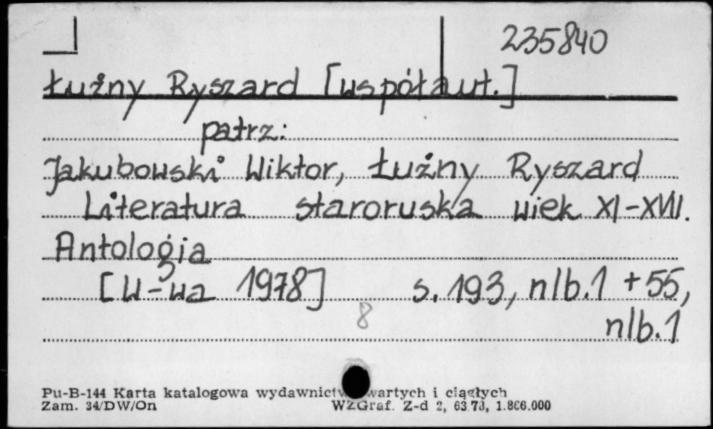 235840
Łużny Ryszard [współaut.]
patrz:
Jakubowski Wiktor, Łużny Ryszard
Literatura staroruska wiek XI-XVII.
Antologia
[W-wa 1978] s. 193, nlb.1 + 55,
8 nlb.1
Pu-B-144 Karta katalogowa wydawnictw zwartych i ciągłych
Zam. 34/DW/On WZGraf. Z-d 2, 63.73, 1.866.000